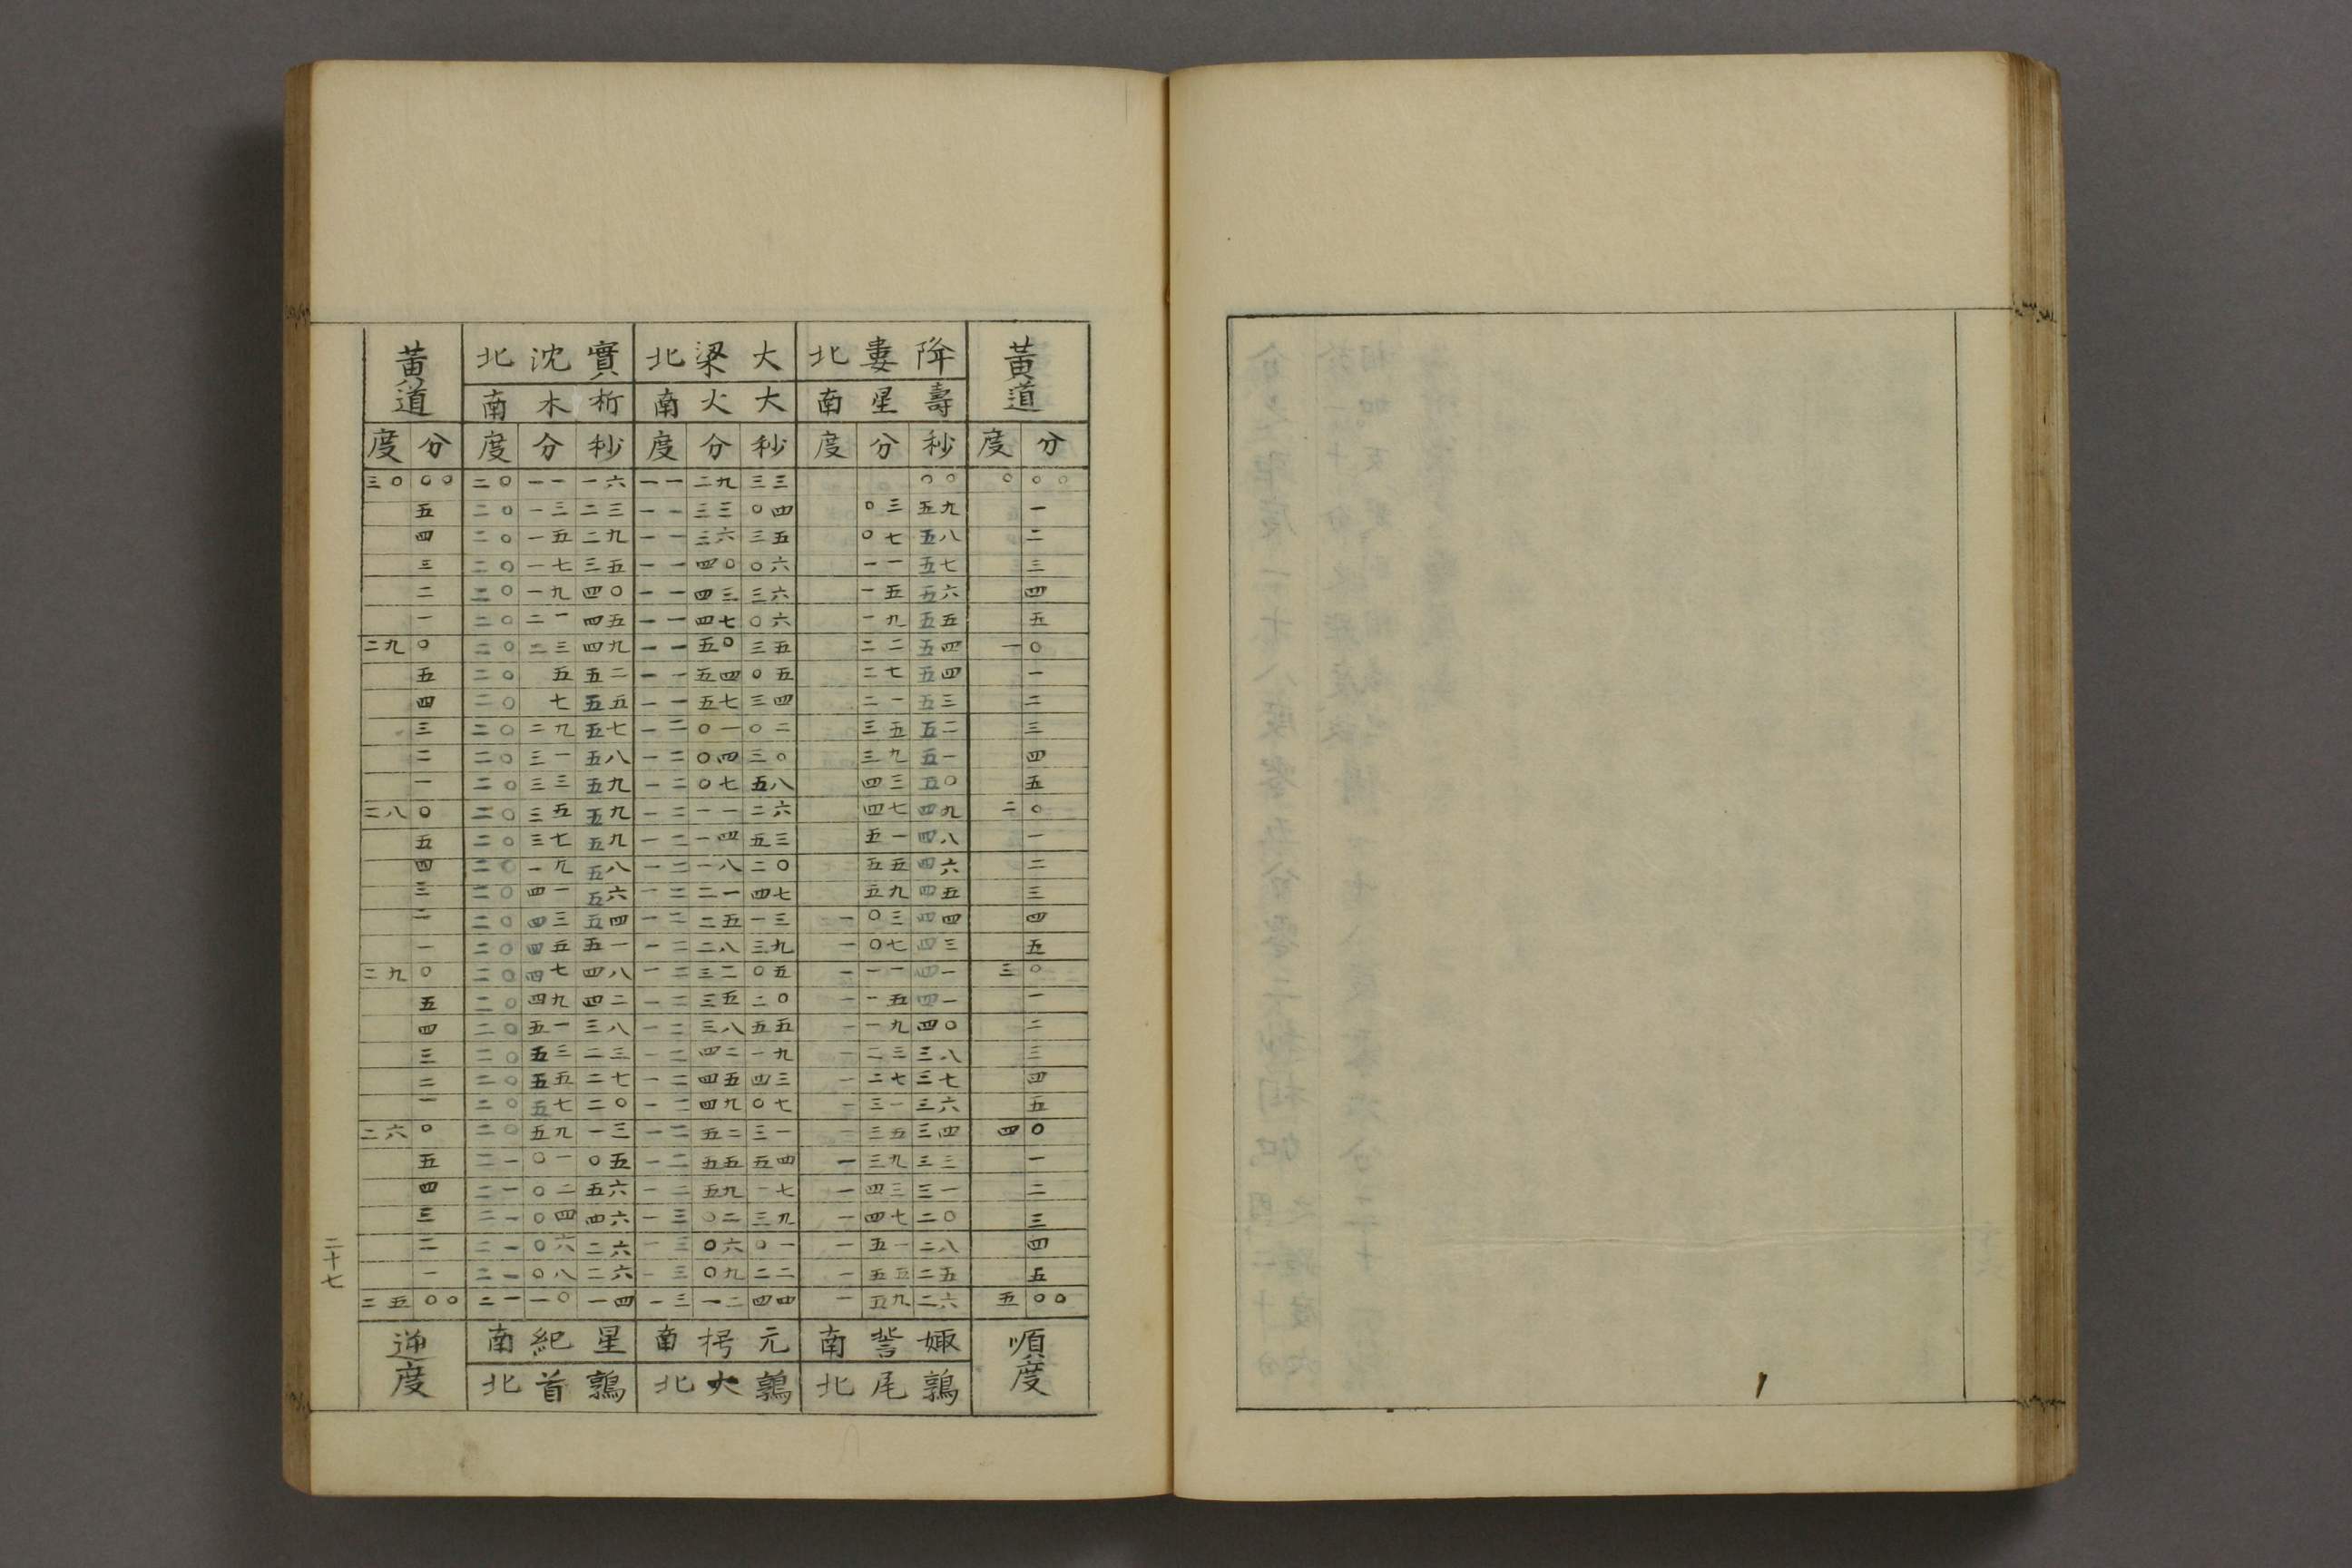 黄道 降婁北 大梁北 實沈北 黄道
壽星南 大火南 析木南
度 分 度 分 秒 度 分 秒 度 分 秒 度 分
三〇 〇〇 二〇 一一 一六 一一 二九 三三 〇〇 〇 〇〇
五 二〇 一三 二三 一一 三三 〇四 〇三 五九 一
四 二〇 一五 二九 一一 三六 三五 〇七 五八 二
三 二〇 一七 三五 一一 四〇 〇六 一一 五七 三
二 二〇 一九 四〇 一一 四三 三六 一五 五六 四
一 二〇 二一 四五 一一 四七 〇六 一九 五五 五
二九 〇 二〇 二三 四九 一一 五〇 三五 二二 五四 一 〇
五 二〇 五 五二 一一 五四 〇五 二七 五四 一
四 二〇 七 五五 一一 五七 三四 二一 五三 二
三 二〇 二九 五七 一二 〇一 〇二 三五 五二 三
二 二〇 三一 五八 一二 〇四 三〇 三九 五一 四
一 二〇 三三 五九 一二 〇七 五八 四三 五〇 五
二八 〇 二〇 三五 五九 一二 一一 二六 四七 四九 二 〇
五 二〇 三七 五九 一二 一四 五三 五一 四八 一
四 二〇 一九 五八 一二 一八 二〇 五五 四六 二
三 二〇 四一 五六 一二 二一 四七 五九 四五 三
二 二〇 四三 五四 一二 二五 一三 一 〇三 四四 四
一 二〇 四五 五一 一二 二八 三九 一 〇七 四三 五
二九 〇 二〇 四七 四八 一二 三二 〇五 一 一一 四一 三 〇
五 二〇 四九 四二 一二 三五 二〇 一 一五 四一 一
四 二〇 五一 三八 一二 三八 五五 一 一九 四〇 二
三 二〇 五三 二三 一二 四二 一九 一 二三 三八 三
二 二〇 五五 二七 一二 四五 四三 一 二七 三七 四
一 二〇 五七 二〇 一二 四九 〇七 一 三一 三六 五
二六 〇 二〇 五九 一三 一二 五二 三一 一 三五 三四 四 〇
五 二一 〇一 〇五 一二 五五 五四 一 三九 三三 一
四 二一 〇二 五六 一二 五九 一七 一 四三 三一 二
三 二一 〇四 四六 一三 〇二 三九 一 四七 二〇 三
二 二一 〇六 二六 一三 〇六 〇一 一 五一 二八 四
一 二一 〇八 二六 一三 〇九 二二 一 五五 二五 五
二五 〇〇 二一 一〇 一四 一三 一二 四四 一 五九 二六 五 〇〇
順度 娵訾南 元枵南 星紀南 逆度
鶉尾北 鶉火北 鶉首北
二十七